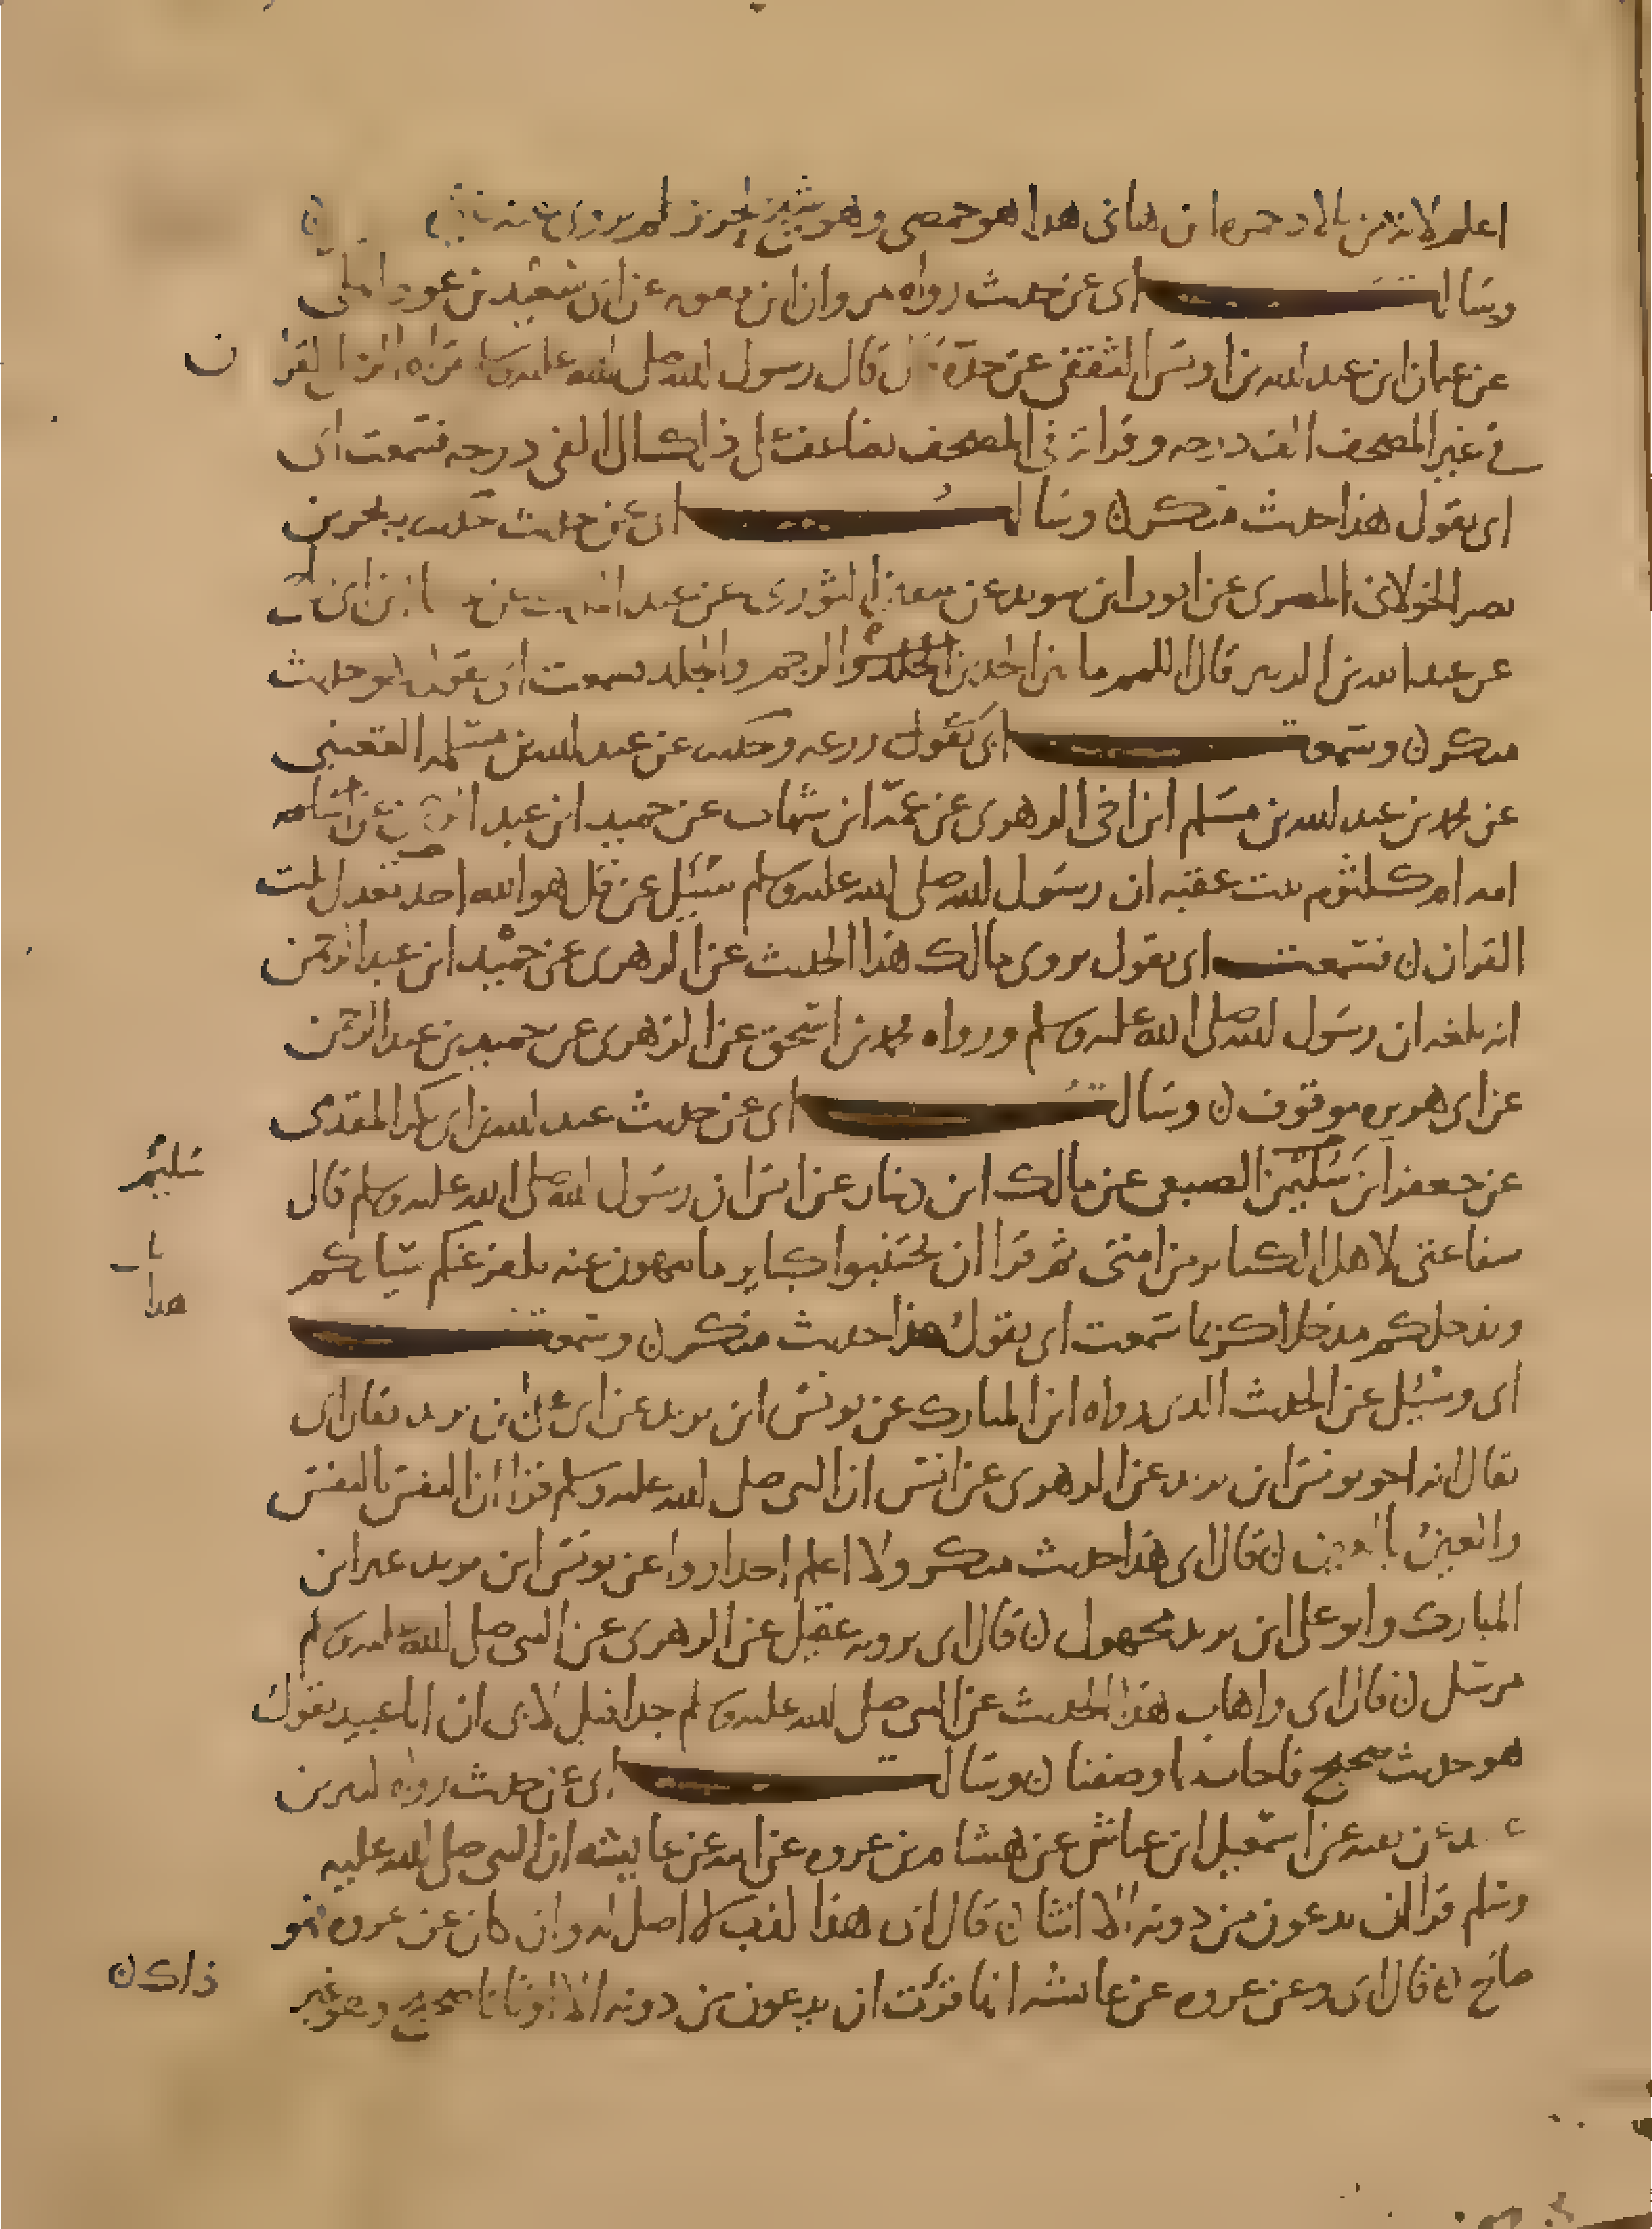 اعلم لانه من بالاد حمزه ابن هانى هذا هو حمصى وهو شيخ لحريز لم يروى عنه
وسالت ابى عن حديث رواه مروان ابن معويه عن ابى سعيد بن عوذ المكى
عن عثمان ابن عبد الله بن اوس الثقفى عن جده قال قال رسول الله صلى الله عليه وسلم قراه الرجل القران
فى غير المصحف الف درجه وقراته فى المصحف يضاعف على ذاك الى الفى درجه فسمعت ابى
ابى يقول هذا حديث منكر ن وسالت ابى عن حديث حدث به بحر بن
نصر الخولانى المصرى عن ايوب ابن سويد عن سفين الثورى عن عبد
عن عبد الله بن الزبير قال اللهم ما نزا الجلد والرجم والجلد سمعت ابى يقول هو حديث
منكر ن وسمعت ابى يقول زرعه وحدث عن عبد الله بن مسلمه القعنبى
عن محمد بن عبد الله بن مسلم ابن اخى الزهرى عن عمه ابن شهاب عن حميد ابن عبد الرحمن عن
امه ام كلثوم بنت عقبه ان رسول الله صلى الله عليه وسلم سئيل عن قل هو الله احد تعدل ثلث
القران ن فسمعت ابى يقول يروى مالك هذا الحديث عن الزهرى عن حميد ابن عبد الرحمن
انه بلغه ان رسول الله صلى الله عليه وسلم ورواه محمد بن اسحق عن الزهرى عن حميد بن عبد الرحمن
عن ابى هريره موقوف ن وسالت ابى عن حديث عبد الله بن ابى بكر المقدمى
عن جعفر ابن سليمن الضبعى عن مالك ابن دينار عن انس ان رسول الله صلى الله عليه وسلم قال
سليمن
شفاعتى لاهل الكباير من امتى ثم قرا ان تجتنبوا كباير ما تنهون عنه نكفر عنكم سياتكم
وندخلكم مدخلا كريما سمعت ابى يقول هذا حديث منكر ن وسمعت
ابى وسئيل عن الحديث الذى رواه ابن المبارك عن يونس ابن يزيد عن ابى على بن يزيد فقال ابى
يقال انه اخو يونس ابن يزيد عن الزهرى عن انس ان النبى صلى الله عليه وسلم قرا ان النفس بالنفس
والعين بالعين ن قال ابى هذا حديث منكر ولا اعلم احدا رواه عن يونس ابن يزيد غير ابن
المبارك وابو على ابن يزيد مجهول ن قال ابى يرويه عقيل عن الزهرى عن النبى صلى الله عليه وسلم
مرسل ن قال ابى واهاب هذا الحديث عن النبى صلى الله عليه وسلم جدا فقيل لابى ان ابا عبيد يقول
هو حديث صحيح فاجاب بما وصفنا ن وسالت ابى عن حديث رواه كثير بن
عبيد عن بقيه عن اسمعيل ابن عياش عن هشام بن عروه عن ابيه عن عايشه ان النبى صلى الله عليه
وسلم قرا ان يدعون من دونه الا انثا ن قال ابى هذا كذب لا اصل له وان كان عن عروه فهو
صالح ن قال ابى وعن عروه عن عايشه انها قرئت ان يدعون من دونه الا اوثانا صحيح وهو غير
ذاك ن